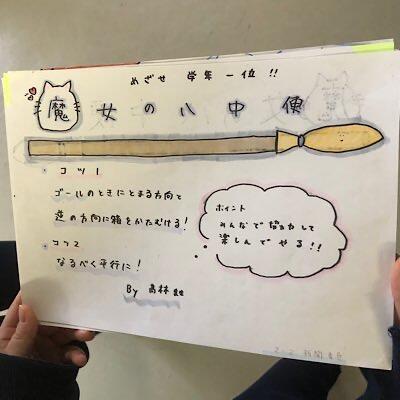 めざせ 学年一位!!
魔女の八中便
コツ1
ゴールのときにとまる方向と
逆の方向に箱をかたむける!
コツ2
なるべく平行に!
By 高林
ポイント
みんなで協力して
楽しんでやる!!
2-2 新聞委員